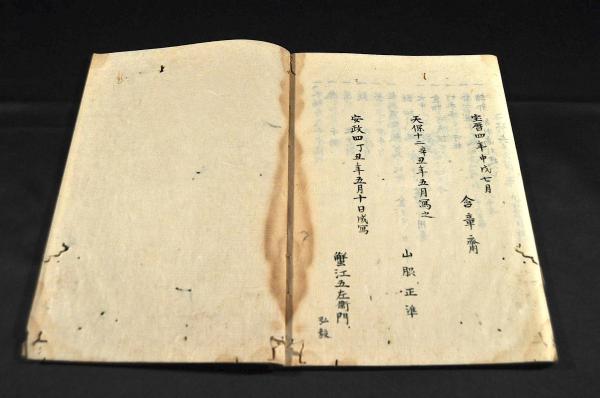 宝暦四年甲戌七月
含章齋
天保十二辛丑年五月写之
山脇正準
安政四丁丑年五月十日成写
蟹江五左衛門
弘毅